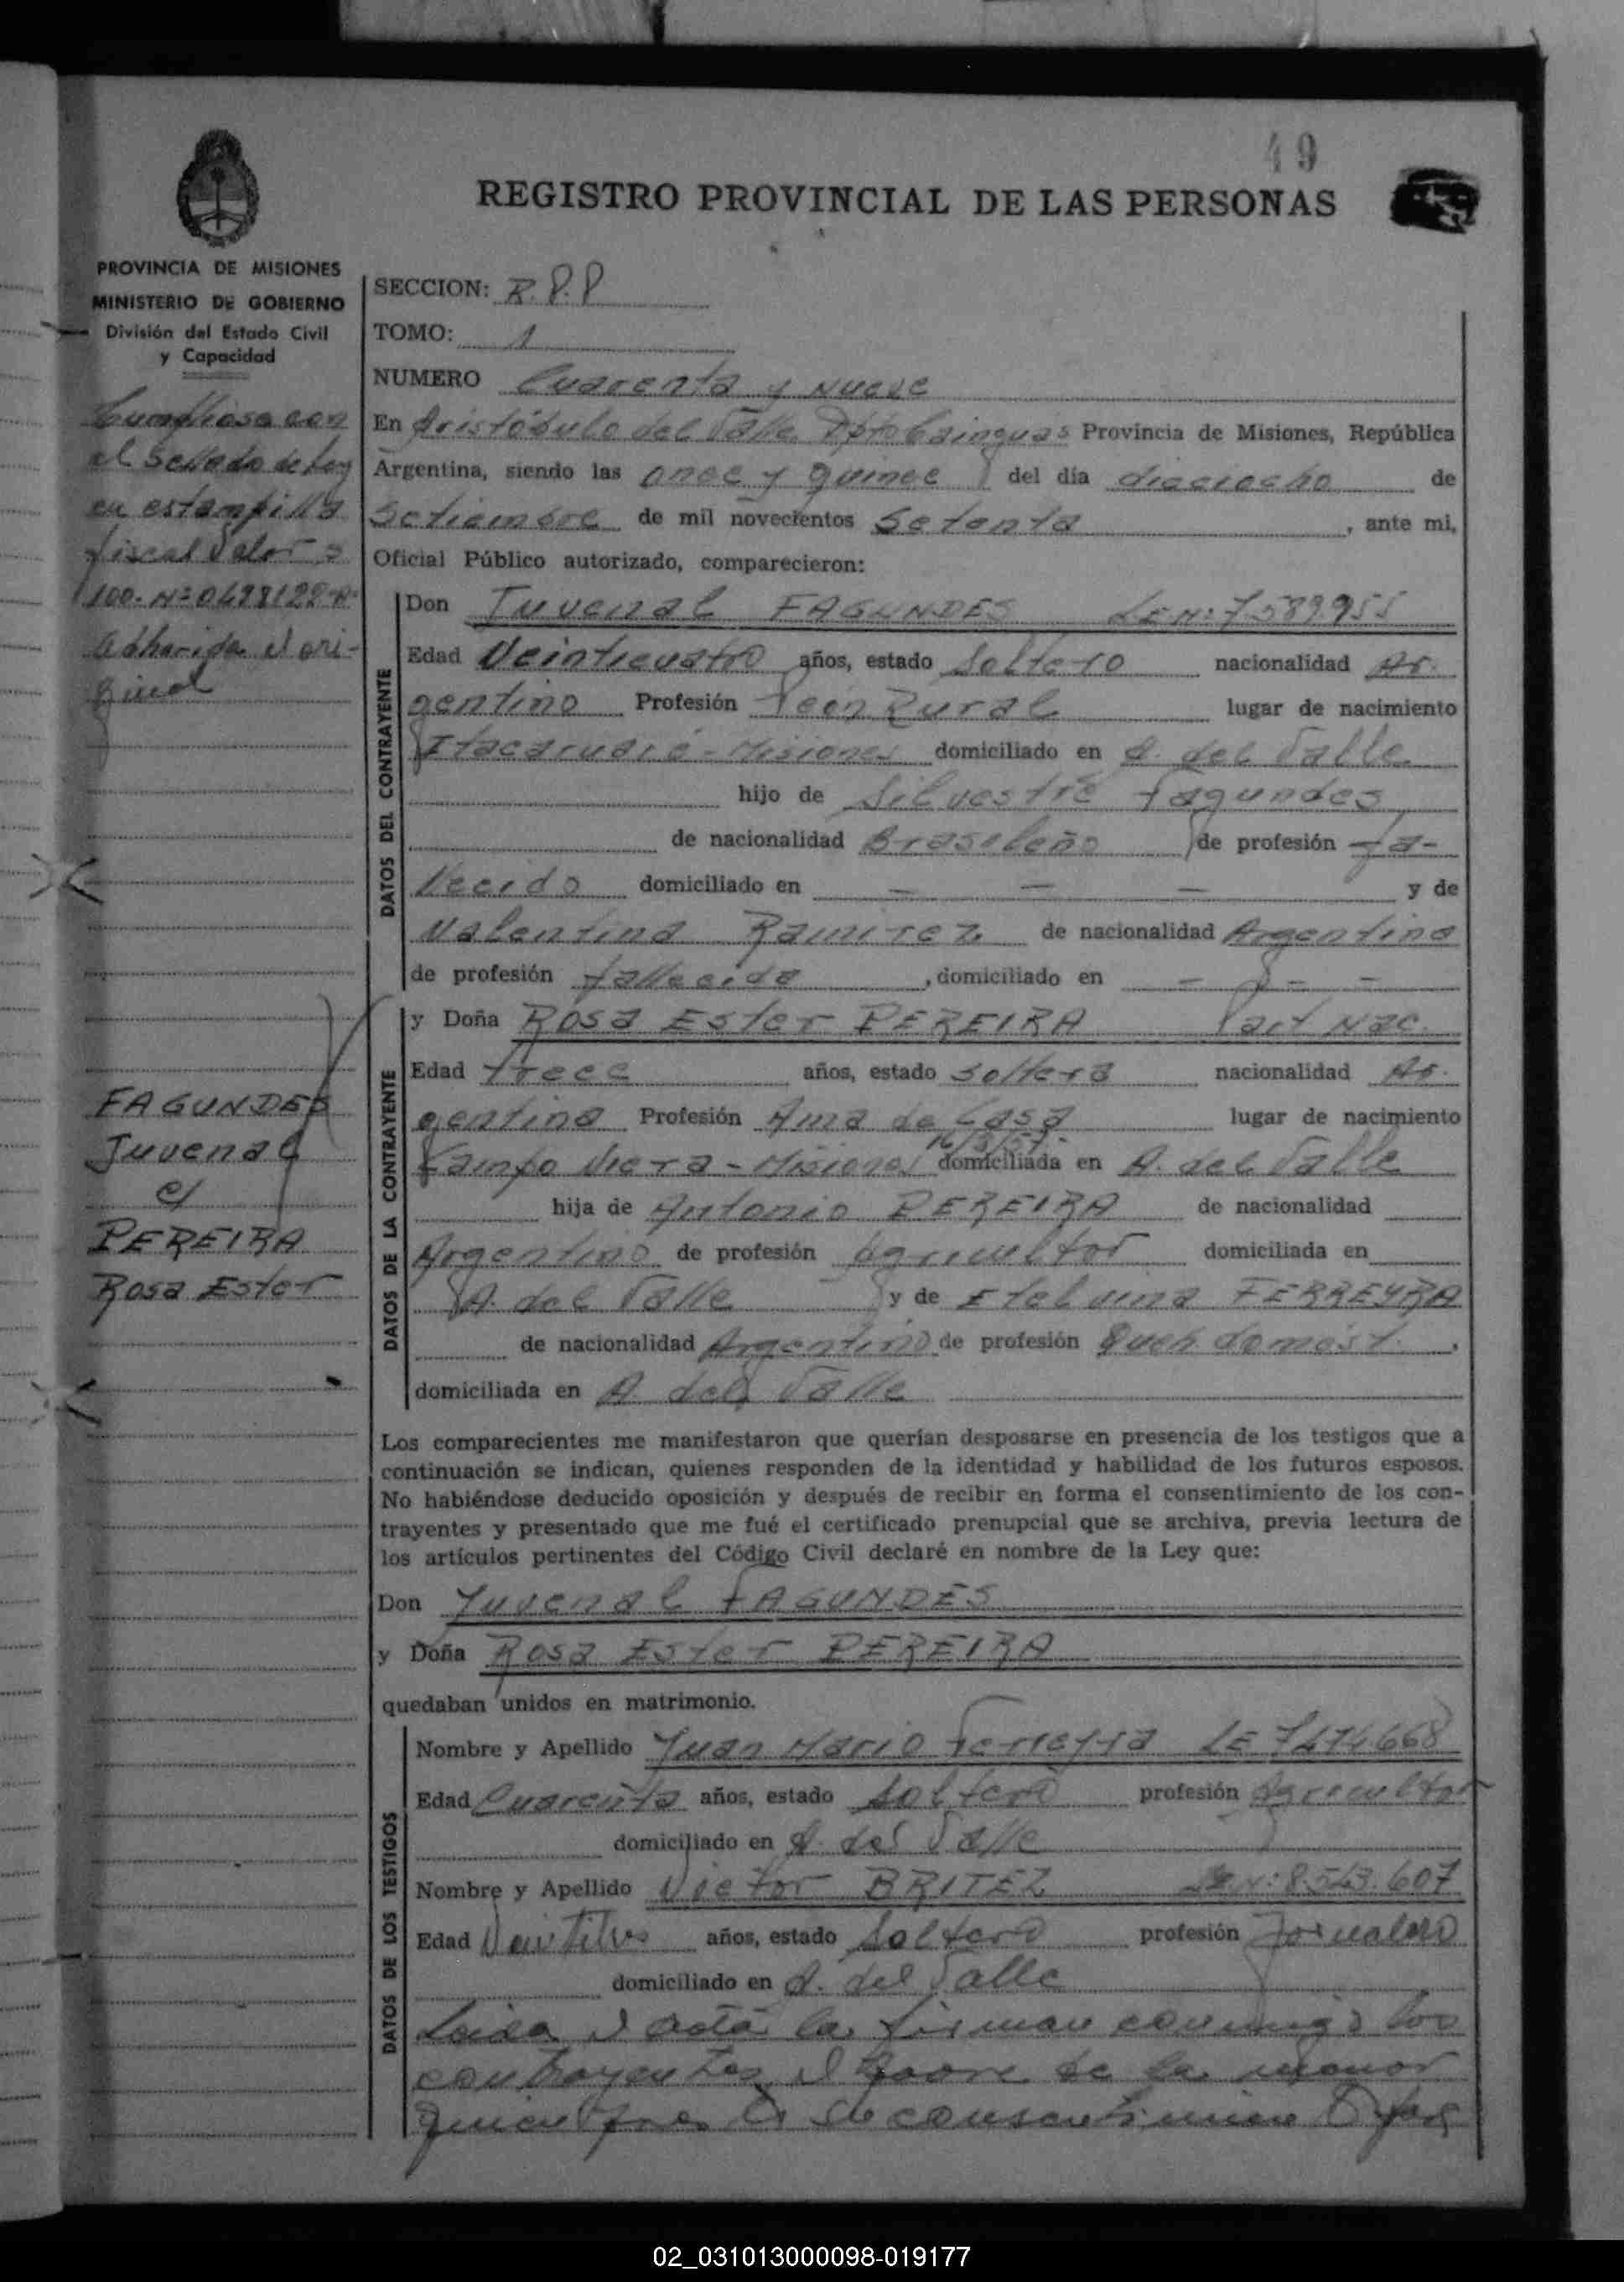 49
REGISTRO PROVINCIAL DE LAS PERSONAS
PROVINCIA DE MISIONES
MINISTERIO DE GOBIERNO
División del Estado Civil
y Capacidad
Cumpliose con
el Sellado de Ley
en estampilla
fiscal Valor $
100.- Nº 0498122
adherida al ori-
ginal
FAGUNDES
Juvenal
c/
PEREIRA
Rosa Ester
SECCION: R.P.P
TOMO: 1
NUMERO Cuarenta y Nueve
En Aristóbulo del Valle Dpto Cainguas Provincia de Misiones, República
Argentina, siendo las once y quince del día dieciocho de
Setiembre de mil novecientos Setenta, ante mi,
Oficial Público autorizado, comparecieron:
DATOS DEL CONTRAYENTE
Don Juvenal FAGUNDES LE Nº: 7.589.955
Edad Veinticuatro años, estado Soltero nacionalidad Ar-
gentino Profesión Peón Rural lugar de nacimiento
Itacaruaré - Misiones domiciliado en A. del Valle
hijo de Silvestre Fagundes
de nacionalidad Brasileño de profesión fa-
llecido domiciliado en — — — y de
Valentina Ramirez de nacionalidad Argentina
de profesión fallecida, domiciliado en — — —
DATOS DE LA CONTRAYENTE
y Doña Rosa Ester PEREIRA Part Nac.
Edad trece años, estado soltera nacionalidad Ar-
gentina Profesión Ama de Casa lugar de nacimiento
16/3/57.-
Campo Viera - Misiones domiciliada en A. del Valle
hija de Antonio PEREIRA de nacionalidad
Argentino de profesión Agricultor domiciliada en
A. del Valle y de Etelvina FERREYRA
de nacionalidad Argentina de profesión Queh. domést.
domiciliada en A. del Valle
Los comparecientes me manifestaron que querían desposarse en presencia de los testigos que a
continuación se indican, quienes responden de la identidad y habilidad de los futuros esposos.
No habiéndose deducido oposición y después de recibir en forma el consentimiento de los con-
trayentes y presentado que me fué el certificado prenupcial que se archiva, previa lectura de
los artículos pertinentes del Código Civil declaré en nombre de la Ley que:
Don Juvenal FAGUNDES
y Doña Rosa Ester PEREIRA
quedaban unidos en matrimonio.
DATOS DE LOS TESTIGOS
Nombre y Apellido Juan Mario Ferreyra LE 7474.668
Edad Cuarenta años, estado Soltero profesión Agricultor
domiciliado en A. del Valle
Nombre y Apellido Victor BRITEZ LE Nº: 8.543.607
Edad Veintitres años, estado Soltero profesión Jornalero
domiciliado en A. del Valle
Leida el acta la firman conmigo los
contrayentes, el padre de la menor
quien consentimien
02_031013000098-019177